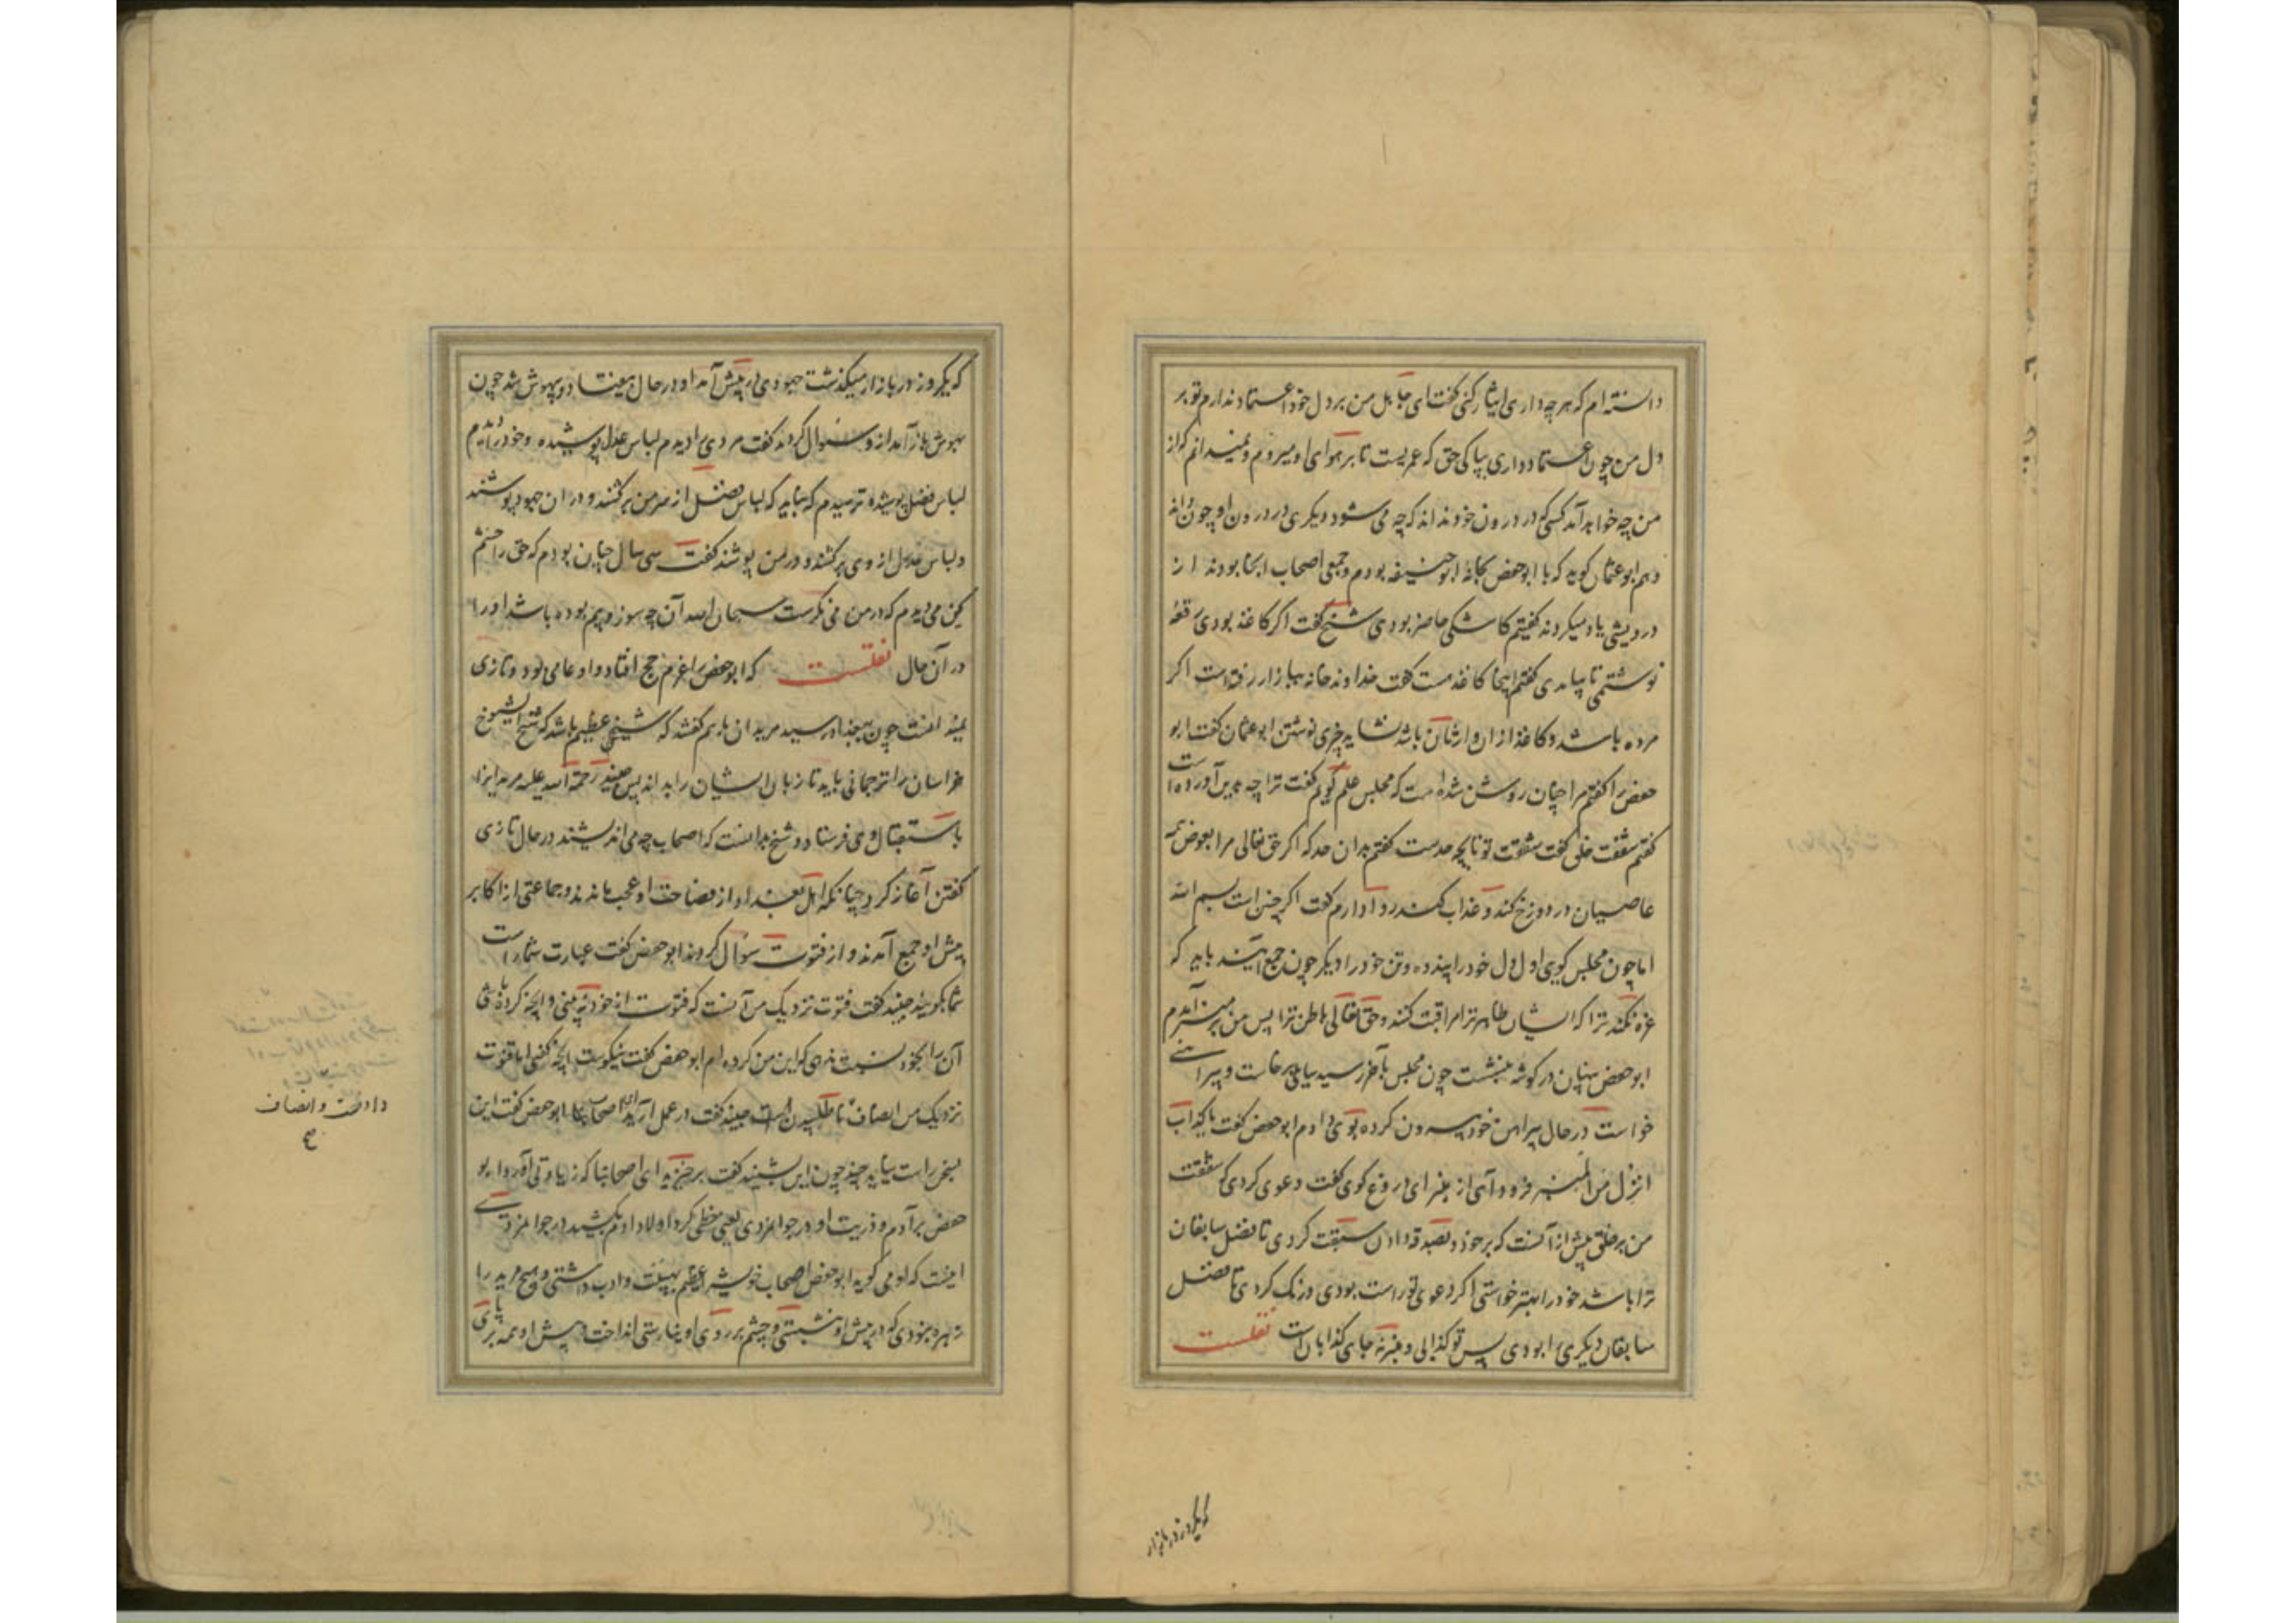 دانسته ام که هر چه داری ایثار کنی گفت ای جاهل من بر دل خود اعتماد ندارم تو بر
دل من چون اعتماد داری بپاکی حق که عمریست تا بر هوای او میروم و نمیدانم که از
من چه خواهد آمد کسی که در درون خود نداند که چه می شود دیگری در درون او چون داند
و هم ابو عثمان گوید که با ابو حفص بخانه ابو حنیفه بودم و جمعی اصحاب انجا بودند از
درویشی یاد میکردند گفتیم کاشکی حاضر بودی شیخ گفت اگر کاغذ بودی رقعه
نوشتمی تا بیامدی گفتم اینجا کاغذ هست گفت خداوند خانه ببازار رفته است اگر
مرده باشد و کاغذ از ان وارثان باشد نشاید چیزی نوشتن ابو عثمان گفت ابو
حفص را گفتم مرا چنان روشن شده است که مجلس علم گویم گفت ترا چه بدین آورده است
گفتم شفقت خلق گفت شفقت تو تا بچه حدست گفتم بدان حد که اگر حق تعالی مرا بعوض همه
عاصیان در دوزخ کند و عذاب کند روا دارم گفت اگر چنین است بسم الله
اما چون مجلس کوی اول دل خود را پند ده و تن خود را دیگر چون جمع آیند باید که
غره نکند ترا که ایشان ظاهر ترا مراقبت کنند و حق تعالی باطن ترا پس من بر منبر آمدم
ابو حفص پنهان در کوشه بنشست چون مجلس بآخر رسید سایلی برخاست و پیراهنی
خواست در حال پیراهن خود بیرون کرده بوی دادم ابو حفص گفت یا کذاب
انزل من المنبر فرود آی از منبر ای دروغ کوی گفت دعوی کردی که شفقت
من بر خلق بیش از آنست که بر خود و بصدقه دادن سبقت کردی تا فضل سابقان
ترا باشد خود را بهتر خواستی اگر دعوی تو راست بودی درنگ کردی تا فضل
سابقان دیگری را بودی پس تو کذابی و منبر نه جای کذابان است نقلست
که یکروز در بازار
که یکروز در بازار میگذشت جهودی در پیش آمد او در حال بیفتاد و بیهوش شد چون
بهوش باز آمد از و سئوال کردند گفت مردی را دیدم لباس عدل پوشیده و خود را دیدم
لباس فضل پوشیده ترسیدم که نباید که لباس فضل از سر من برکشند و در ان جهود پوشند
و لباس عدل از وی برکشند و در من پوشند گفت سی سال چنان بودم که حق را خشم
کین می دیدم که در من می نگرست سبحان الله آن چه سوز و بیم بوده باشد او را
در آن حال نقلست که ابو حفص را عزم حج افتاد و او عامی بود و تازی
نمیدانست چون ببغداد رسید مریدان باهم گفتند که شینی عظیم باشد که شیخ الشیوخ
خراسان را ترجمانی باید تا زبان ایشان را بداند پس جنید رحمة الله علیه مریدانرا
باستقبال او می فرستاد و شیخ بدانست که اصحاب چه می اندیشند در حال تازی
گفتن آغاز کرد چنانکه اهل بغداد از فصاحت او عجب ماندند و جماعتی از اکابر
پیش او جمع آمدند و از فتوت سؤال کردند ابو حفص گفت عبارت شما راست
شما بگویید جنید گفت فتوت نزدیک من آنست که فتوت از خود نه بینی و آنچه کرده باشی
آن را بخود نسبت ندهی که این من کرده ام ابو حفص گفت نیکوست آنچه گفتی اما فتوت
نزدیک من انصاف نا طلبیدن است جنید گفت در عمل آرید اصحابنا ابو حفص گفت این
بسخن راست نیاید جنید چون این بشنید گفت برخیزید ای اصحابنا که زیادتی آورد ابو
حفص بر آدم و ذریت او در جوانمردی یعنی خطی گرد اولاد آدم بکشید در جوانمردی
اینست که او می گوید ابو حفص اصحاب خویش را عظیم بهیبت و ادب داشتی و هیچ مرید را
زهره نبودی که در پیش او بنشستی و چشم بر روی او نیارستی انداخت و پیش او همه بر پای
دادنست و انصاف